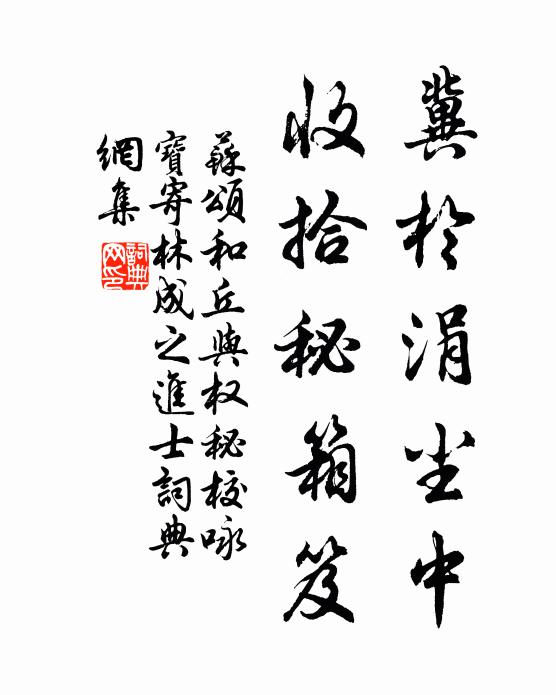 冀於涓尘中
收拾秘箱笈
蘇頌和丘與权秘校咏
寳寄林成之進士詞典
網集
詞典網印